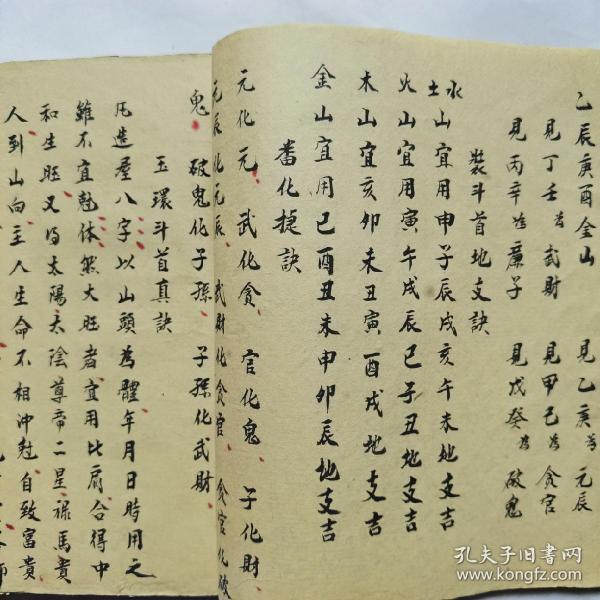 乙辰庚酉金山　見乙庚為元辰
見丁壬為武財　見甲己為貪官
見丙辛為廉子　見戊癸為破鬼
裝斗首地支訣
水土山宜用申子辰戌亥午未地支吉
火山宜用寅午戌辰巳子丑地支吉
木山宜亥卯未丑寅酉戌地支吉
金山宜用巳酉丑未申卯辰地支吉
番化捷訣
元化元　武化貪　官化鬼　子化財
元辰化元辰　武財化貪官　貪官化破
鬼　破鬼化子孫　子孫化武財
玉環斗首真訣
凡造屋八字以山頭為體年月日時用之
雖不宜尅体然大旺者宜用比肩合得中
和生旺又得太陽太陰尊帝二星祿馬貴
人到山向主人生命不相沖尅自致富貴
孔夫子旧書网
www.kongfz.com